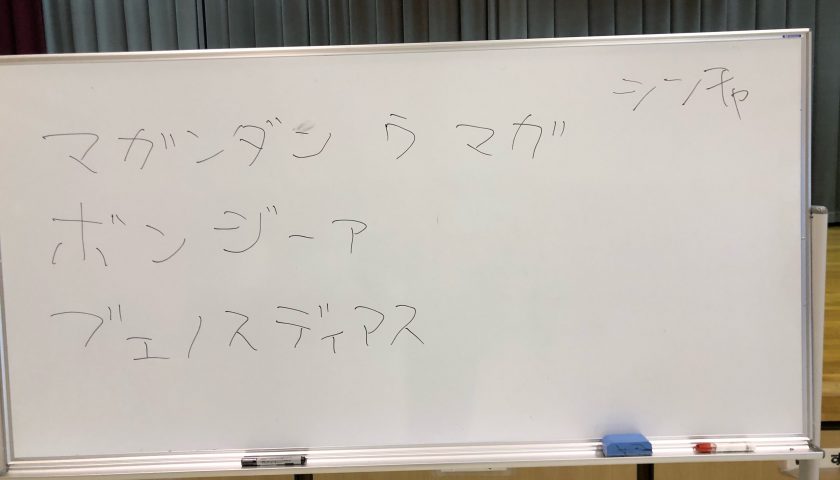 シンチャ
マガンダン ウ マガ
ボンジーア
ブエノスディアス